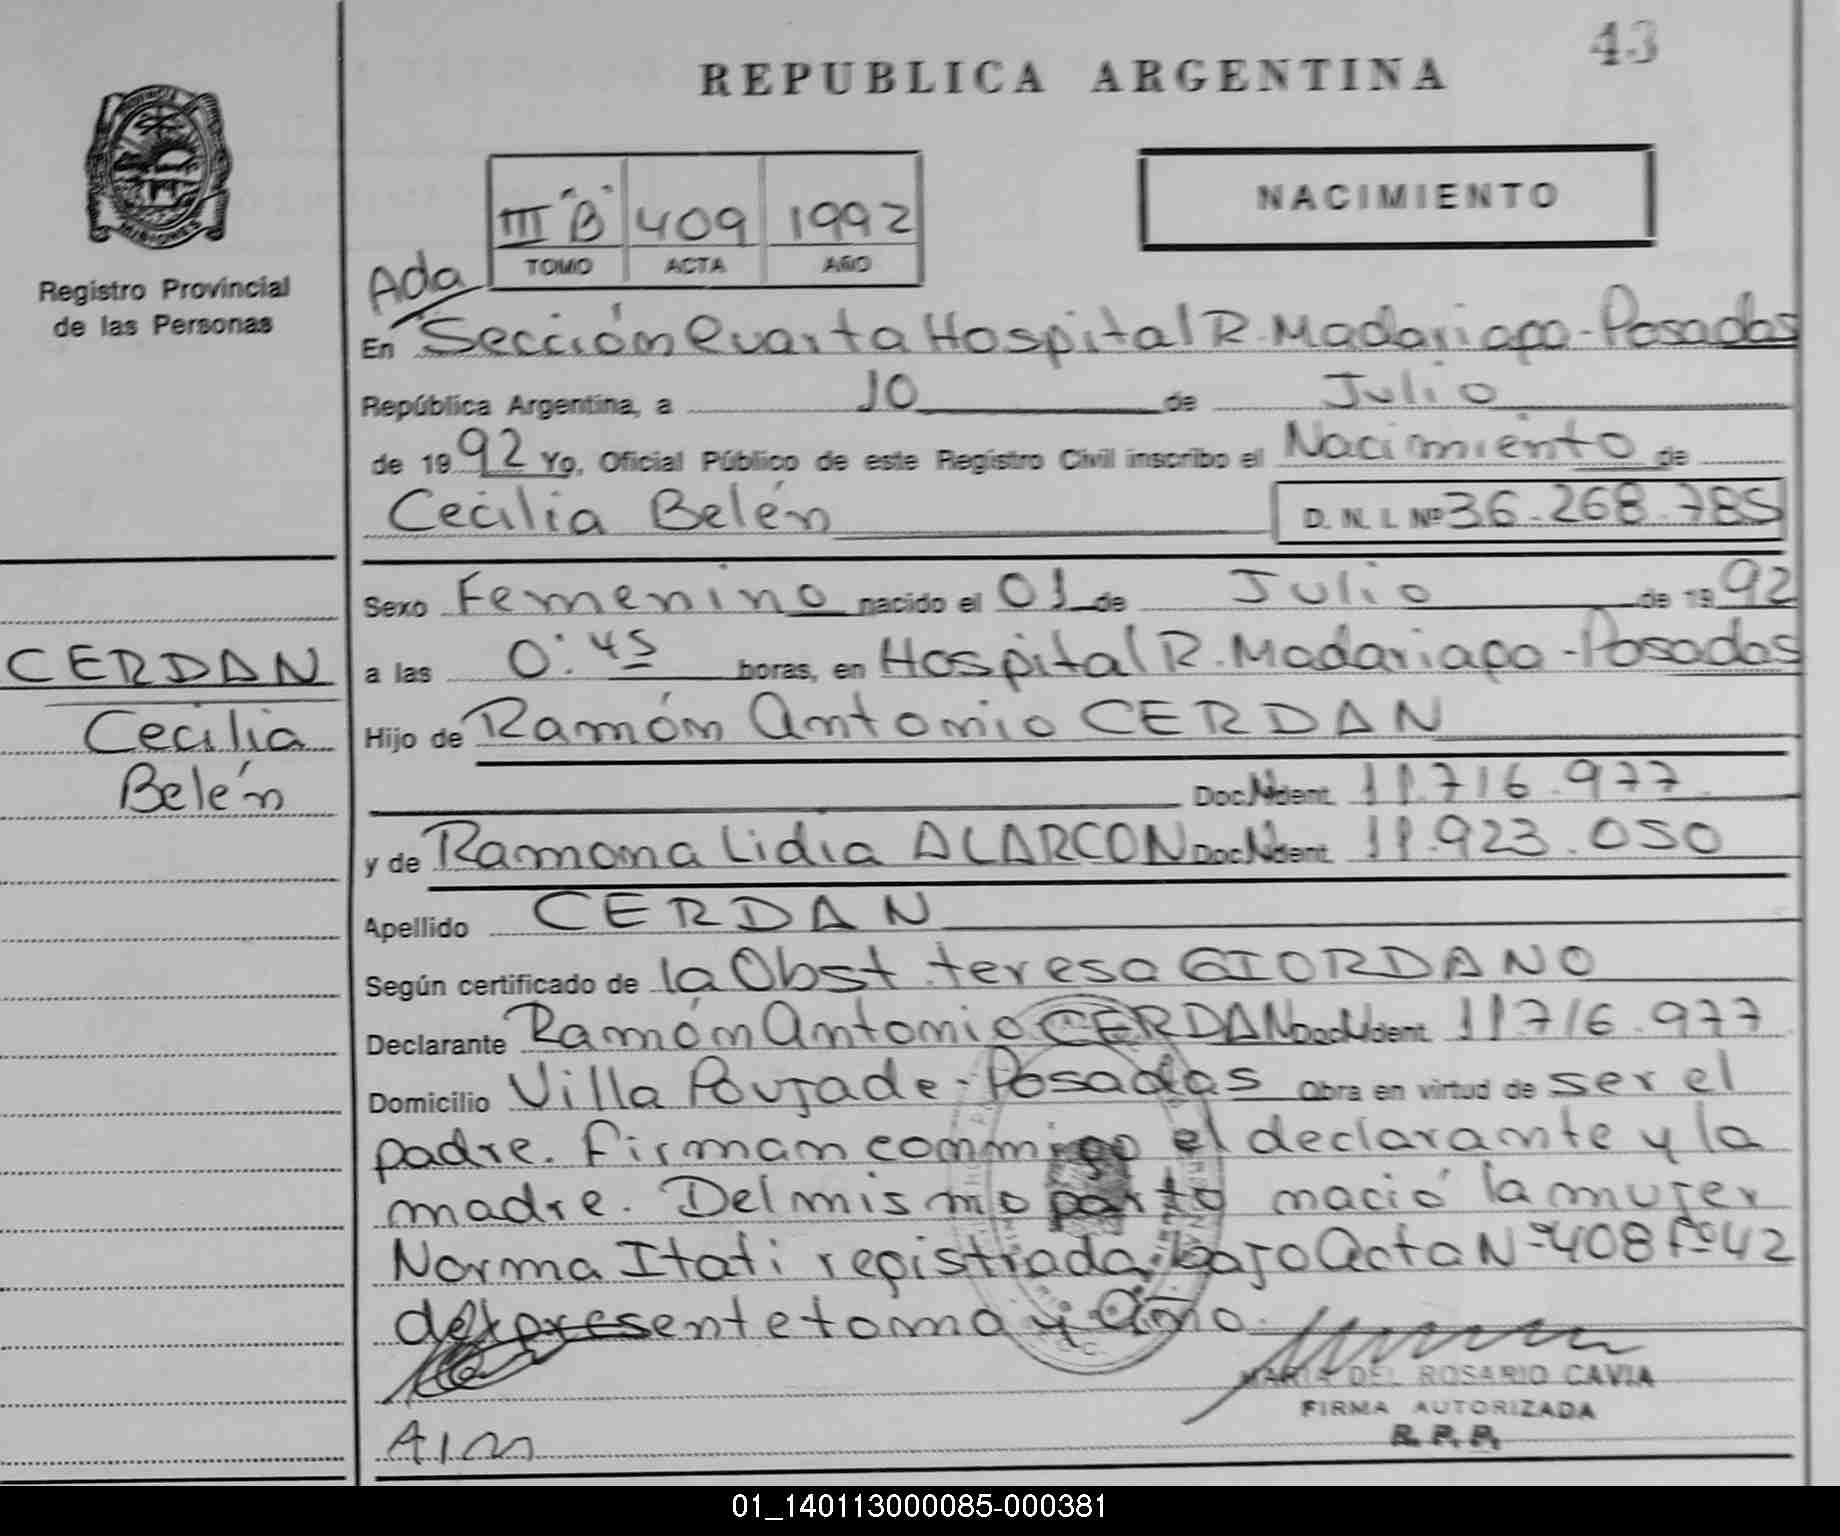 43
REPUBLICA ARGENTINA
NACIMIENTO
III "B" 409 1992
TOMO ACTA AÑO
Registro Provincial
de las Personas
Ada
En Sección Cuarta Hospital R. Madariaga - Posadas
República Argentina, a 10 de Julio
de 1992 Yo, Oficial Público de este Registro Civil inscribo el Nacimiento de
Cecilia Belén D. N. I. Nº 36.268.785
Sexo Femenino nacido el 01 de Julio de 1992
CERDAN
Cecilia
Belén
a las 0:45 horas, en Hospital R. Madariaga - Posadas
Hijo de Ramón Antonio CERDAN
Doc. Ident. 11.716.977
y de Ramona Lidia ALARCON Doc. Ident. 11.923.050
Apellido CERDAN
Según certificado de la Obst. teresa GIORDANO
Declarante Ramón Antonio CERDAN Doc. Ident. 11716.977
Domicilio Villa Poujade - Posadas Obra en virtud de ser el
padre. firman conmigo el declarante y la
madre. Del mismo parto nació la mujer
Norma Itatí registrada bajo Acta Nº 408 fº 42
del presente tomo y Año.
MARIA DEL ROSARIO CAVIA
FIRMA AUTORIZADA
R. P. P.
01_140113000085-000381